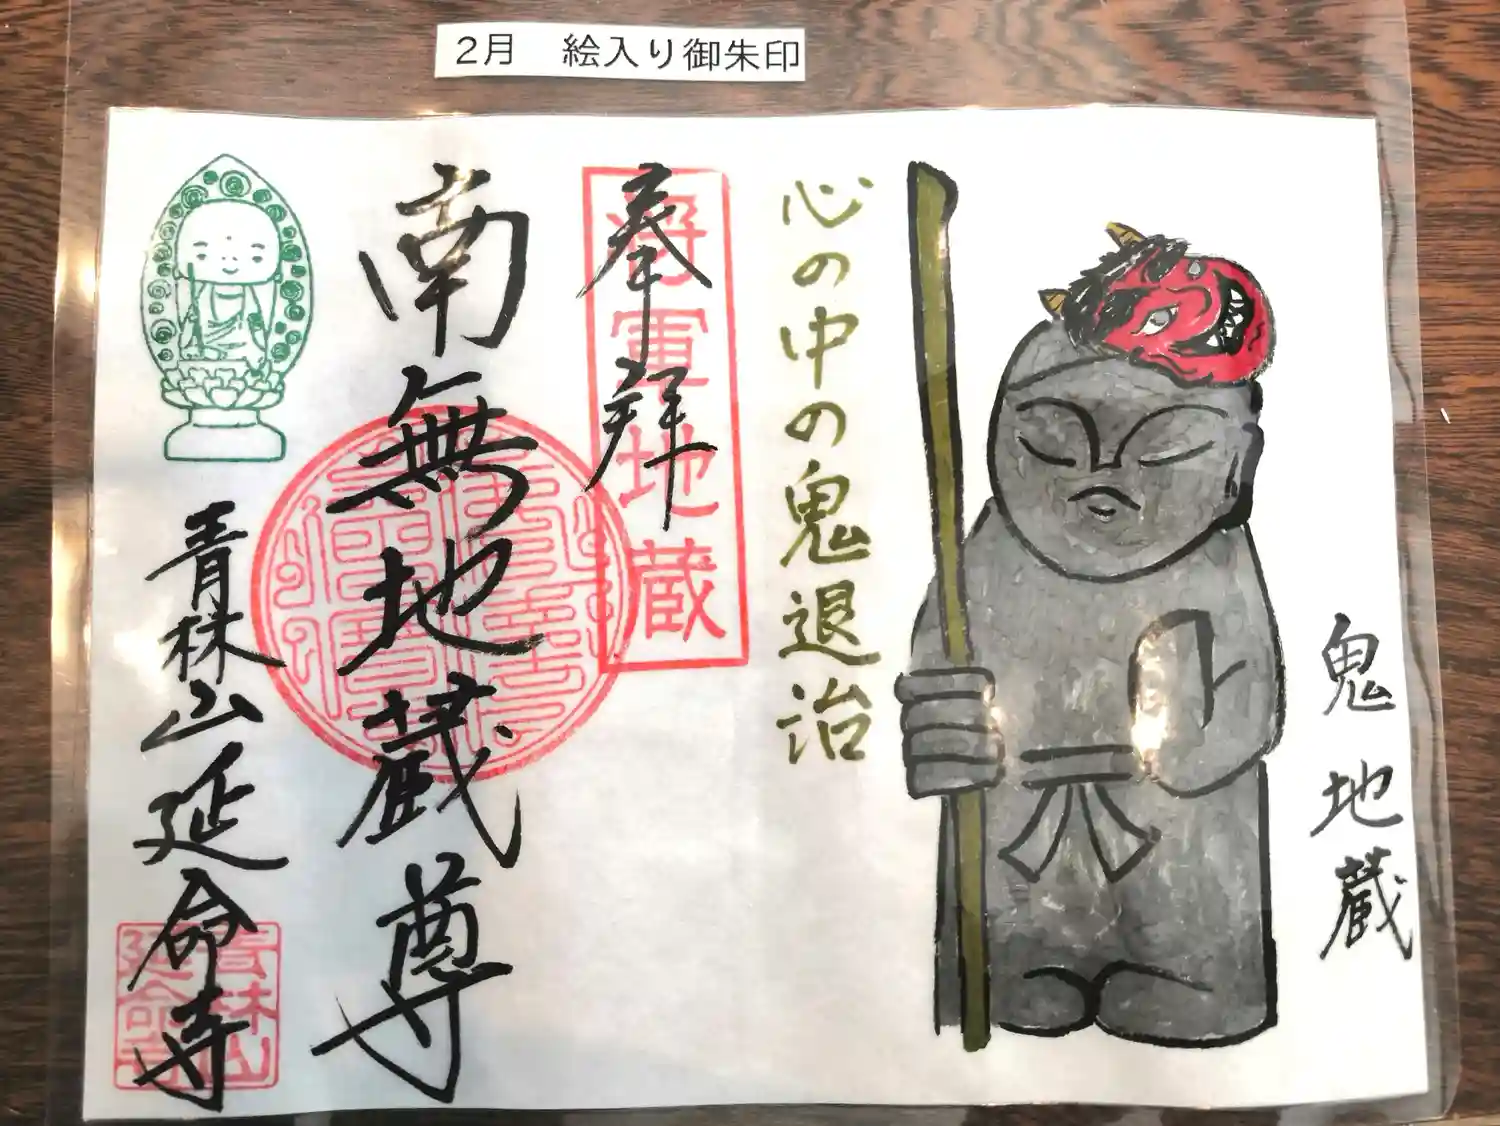 2月 絵入り御朱印
鬼地蔵
心の中の鬼退治
奉拝
将軍地蔵
南無地蔵尊
青林山延命寺
青林山
延命寺